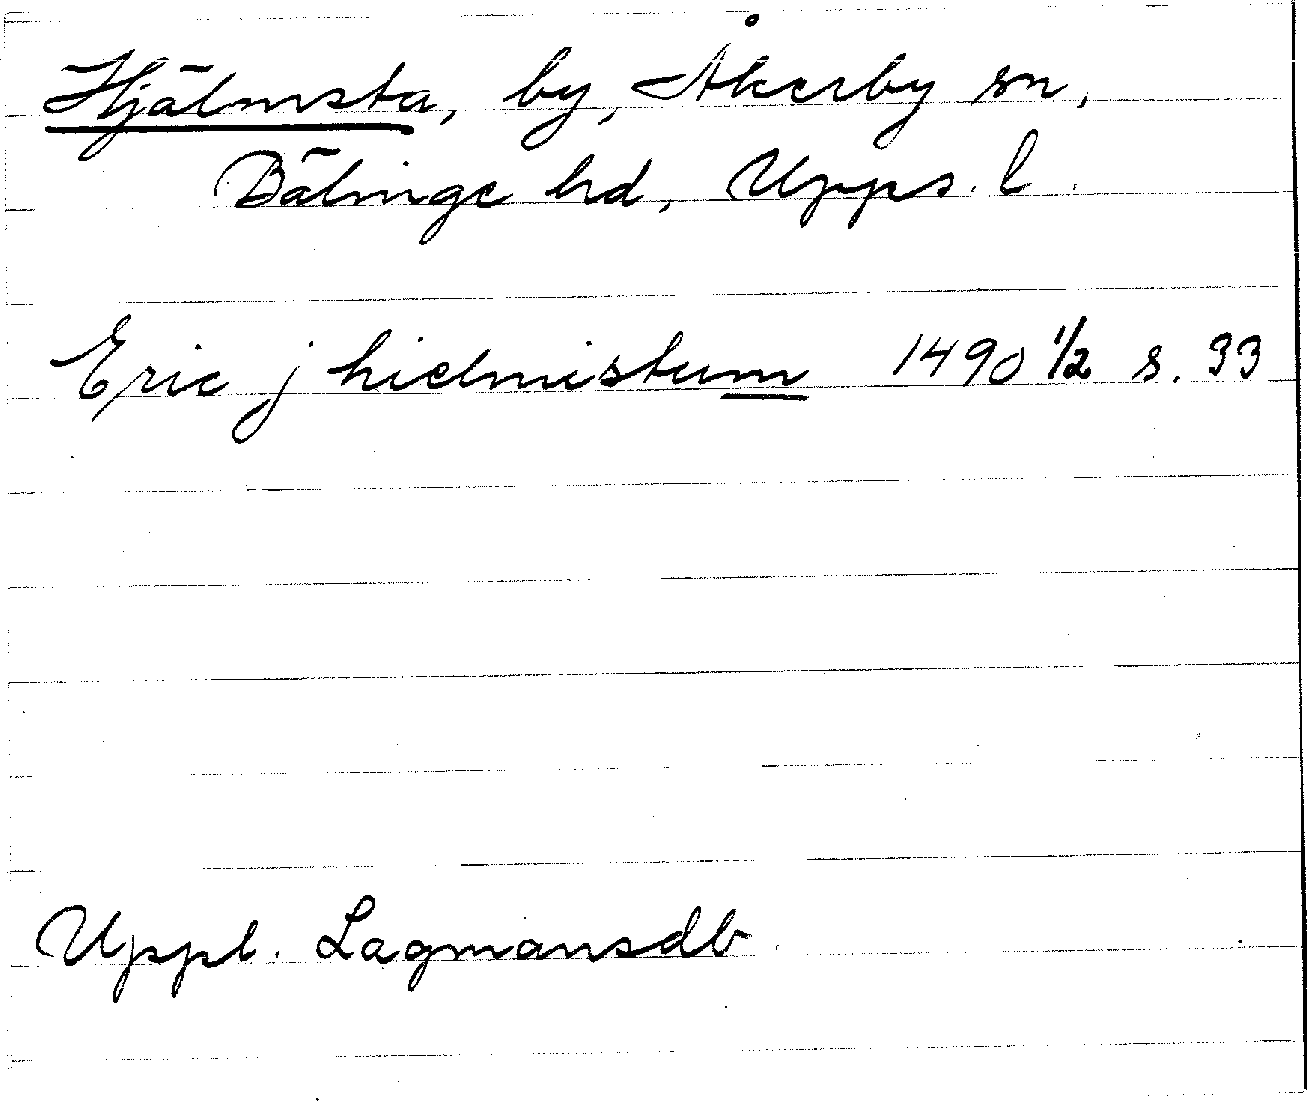 Hjälmsta, by, Åkerby sn,
Bälinge hd, Upps. l.
Eric j hielmistum 1490 1/2 s. 33
Uppl. Lagmansdb.